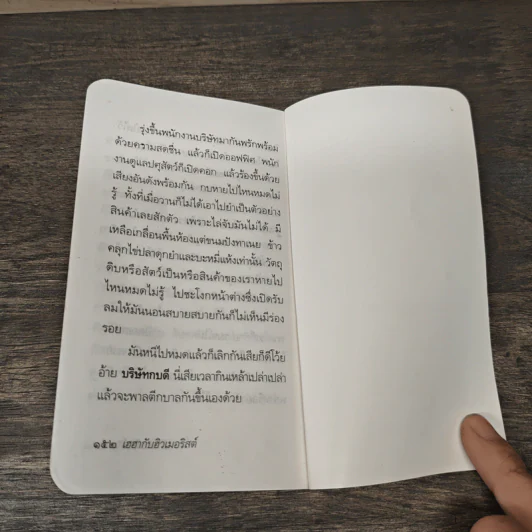 รุ่งขึ้นพนักงานบริษัทมากันพรักพร้อม
ด้วยความสดชื่น แล้วก็เปิดออฟฟิศ พนัก
งานดูแลปศุสัตว์ก็เปิดคอก แล้วร้องขึ้นด้วย
เสียงอันดังพร้อมกัน กบหายไปไหนหมดไม่
รู้ ทั้งที่เมื่อวานก็ไม่ได้เอาไปยำเป็นตัวอย่าง
สินค้าเลยสักตัว เพราะไล่จับมันไม่ได้ มี
เหลือเกลื่อนพื้นห้องแต่ขนมปังทาเนย ข้าว
คลุกไข่ปลาดุกยำและบะหมี่แห้งเท่านั้น วัตถุ
ดิบหรือสัตว์เป็นหรือสินค้าของเราหายไป
ไหนหมดไม่รู้ ไปชะโงกหน้าต่างซึ่งเปิดรับ
ลมให้มันนอนสบายสบายกันก็ไม่เห็นมีร่อง
รอย
มันหนีไปหมดแล้วก็เลิกกันเสียก็ดีโว้ย
อ้าย บริษัทกบดี นี่เสียเวลากินเหล้าเปล่าเปล่า
แล้วจะพาลตีกบาลกันขึ้นเองด้วย
๑๕๒ เฮฮากับฮิวเมอริสต์